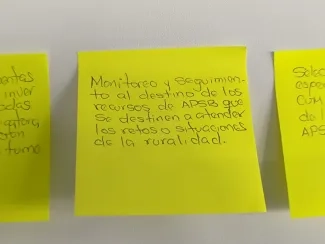 entas
inver
odas
Monitoreo y seguimien-
to al destino de los
recursos de APSB que
se destinen a atender
los retos o situaciones
de la ruralidad.
de l
APS